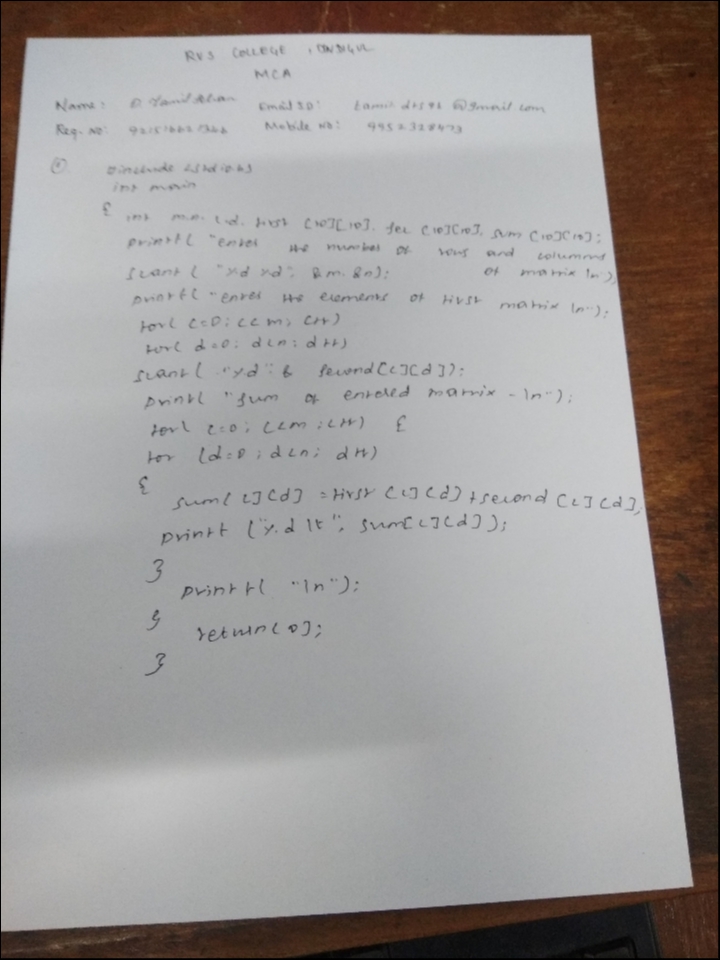 RVS COLLEGE,
MCA
Name: Email ID: @gmail.com
Reg. No: Mobile no:
①. #include <stdio.h>
int main
{ int m.n. c.d. first [10][10]. sec [10][10], sum [10][10];
printf( "enter the number of rows and columns
scanf ( "%d %d", &m. &n); of matrix \n");
printf( "enter the elements of first matrix \n");
for( c=0; c<m; c++)
for( d=0; d<n; d++)
scanf( "%d" & second[c][d]);
printf( "sum of entered matrix - \n");
for( c=0; c<m; c++) {
for (d=0; d<n; d++)
{
sum[c][d] = first [c][d] + second [c][d];
printf ("%d \t", sum[c][d]);
}
printf( "\n");
}
return[0];
}